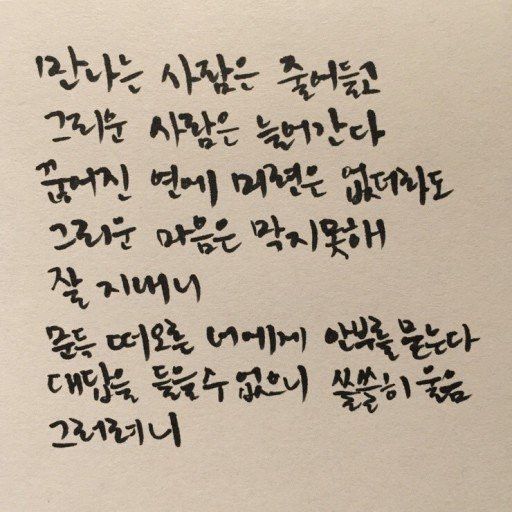 만나는 사람은 줄어들고
그리운 사람은 늘어간다
끊어진 연에 미련은 없더라도
그리운 마음은 막지못해
잘 지내니
문득 떠오른 너에게 안부를 묻는다
대답을 들을수없으니 쓸쓸히 웃음
그러려니